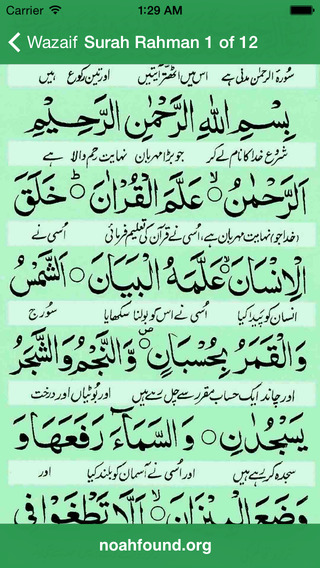 Carrier 1:29 AM
Wazaif Surah Rahman 1 of 12
سُورَہ الرَّحمٰن مَدَنی ہے اس میں اٹھتّر آیتیں اور تین رکوع ہیں
بِسْمِ اللهِ الرَّحْمٰنِ الرَّحِيْمِ
شروع خدا کا نام لے کر جو بڑا مہربان نہایت رحم والا ہے
اَلرَّحْمٰنُ ۙ عَلَّمَ الْقُرْاٰنَ ؕ خَلَقَ
(خدا جو) نہایت مہربان ہے، اُسی نے قرآن کی تعلیم فرمائی اُسی نے
الْاِنْسَانَ ۙ عَلَّمَهُ الْبَيَانَ ○ اَلشَّمْسُ
انسان کو پَیدا کیا اُسی نے اس کو بولنا سکھایا سُورج
وَالْقَمَرُ بِحُسْبَانٍ ۪ وَّالنَّجْمُ وَالشَّجَرُ
اور چاند ایک حساب مقرر سے چل رہے ہیں اور بُوٹیاں اور درخت
يَسْجُدٰنِ ○ وَالسَّمَآءَ رَفَعَهَا وَ
سجدہ کر رہے ہیں اور اُسی نے آسمان کو بلند کیا اور
وَضَعَ الْمِيْزَانَ ○ اَلَّا تَطْغَوْا فِى
noahfound.org